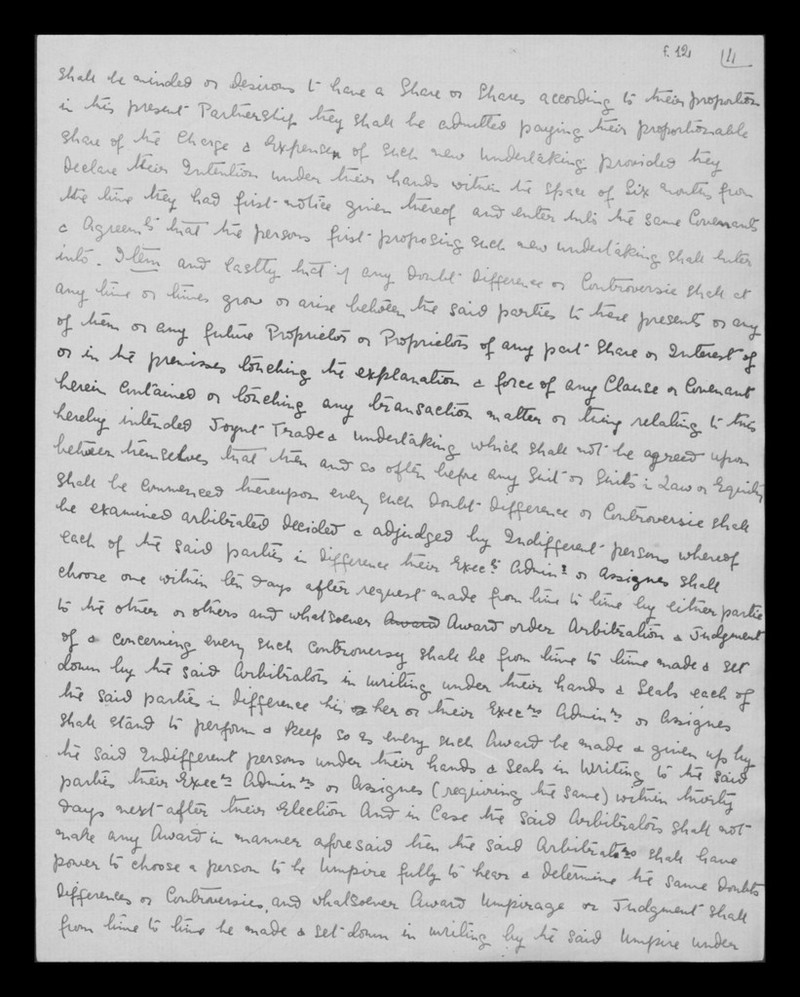 f. 12 4
shall be minded or desirous to have a Share or Shares according to their proportion
in this present Partnership they shall be admitted paying their proportionable
share of the Charge & Expense of such new undertaking provided they
declare their Intention under their hands within the space of Six months from
the time they had first notice given thereof and enter into the same Covenants
& Agreemts that the persons first proposing such new undertaking shall enter
into. Item and lastly that if any doubt difference or Controversie shall at
any time or times grow or arise between the said parties to these presents or any
of them or any future Proprietor or Proprietors of any part Share or Interest of
or in the premisses touching the explanation & force of any Clause or Covenant
herein contained or touching any transaction matter or thing relating to this
hereby intended Joynt Trade & undertaking which shall not be agreed upon
between themselves that then and so often before any Suit or Suits in Law or Equity
shall be commenced thereupon every such doubt difference or Controversie shall
be examined arbitrated decided & adjudged by Indifferent persons whereof
each of the said parties in difference their Execrs Adminrs or Assignes shall
choose one within ten days after request made from time to time by either partie
to the other or others and whatsoever Award Award order Arbitration & Judgment
of & concerning every such Controversy shall be from time to time made & set
down by the said Arbitrators in writing under their hands & Seals each of
the said parties in difference his or her or their Execrs Adminrs or Assignes
shall stand to perform & keep so as every such Award be made & given up by
the said Indifferent persons under their hands & Seals in Writing to the said
parties their Execrs Adminrs or Assignes (requiring the same) within twenty
days next after their Election And in Case the said Arbitrators shall not
make any Award in manner aforesaid then the said Arbitrators shall have
power to choose a person to be Umpire fully to hear & determine the same doubts
differences or Controversies, and whatsoever Award Umpirage or Judgment shall
from time to time be made & set down in writing by the said Umpire under